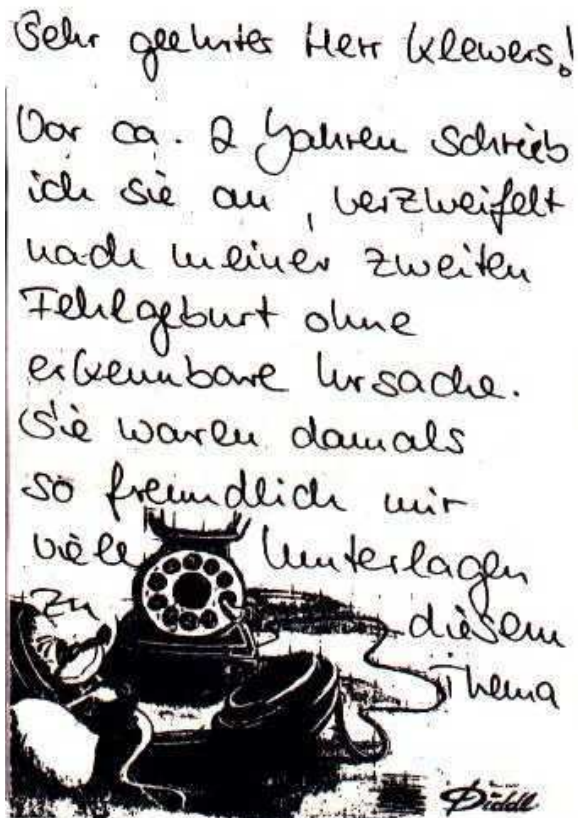 Sehr geehrter Herr Klewers!
Vor ca. 2 Jahren schrieb
ich sie an, verzweifelt
nach meiner zweiten
Fehlgeburt ohne
erkennbare Ursache.
Sie waren damals
so freundlich mir
viele Unterlagen
zu diesem
Thema
Diddl